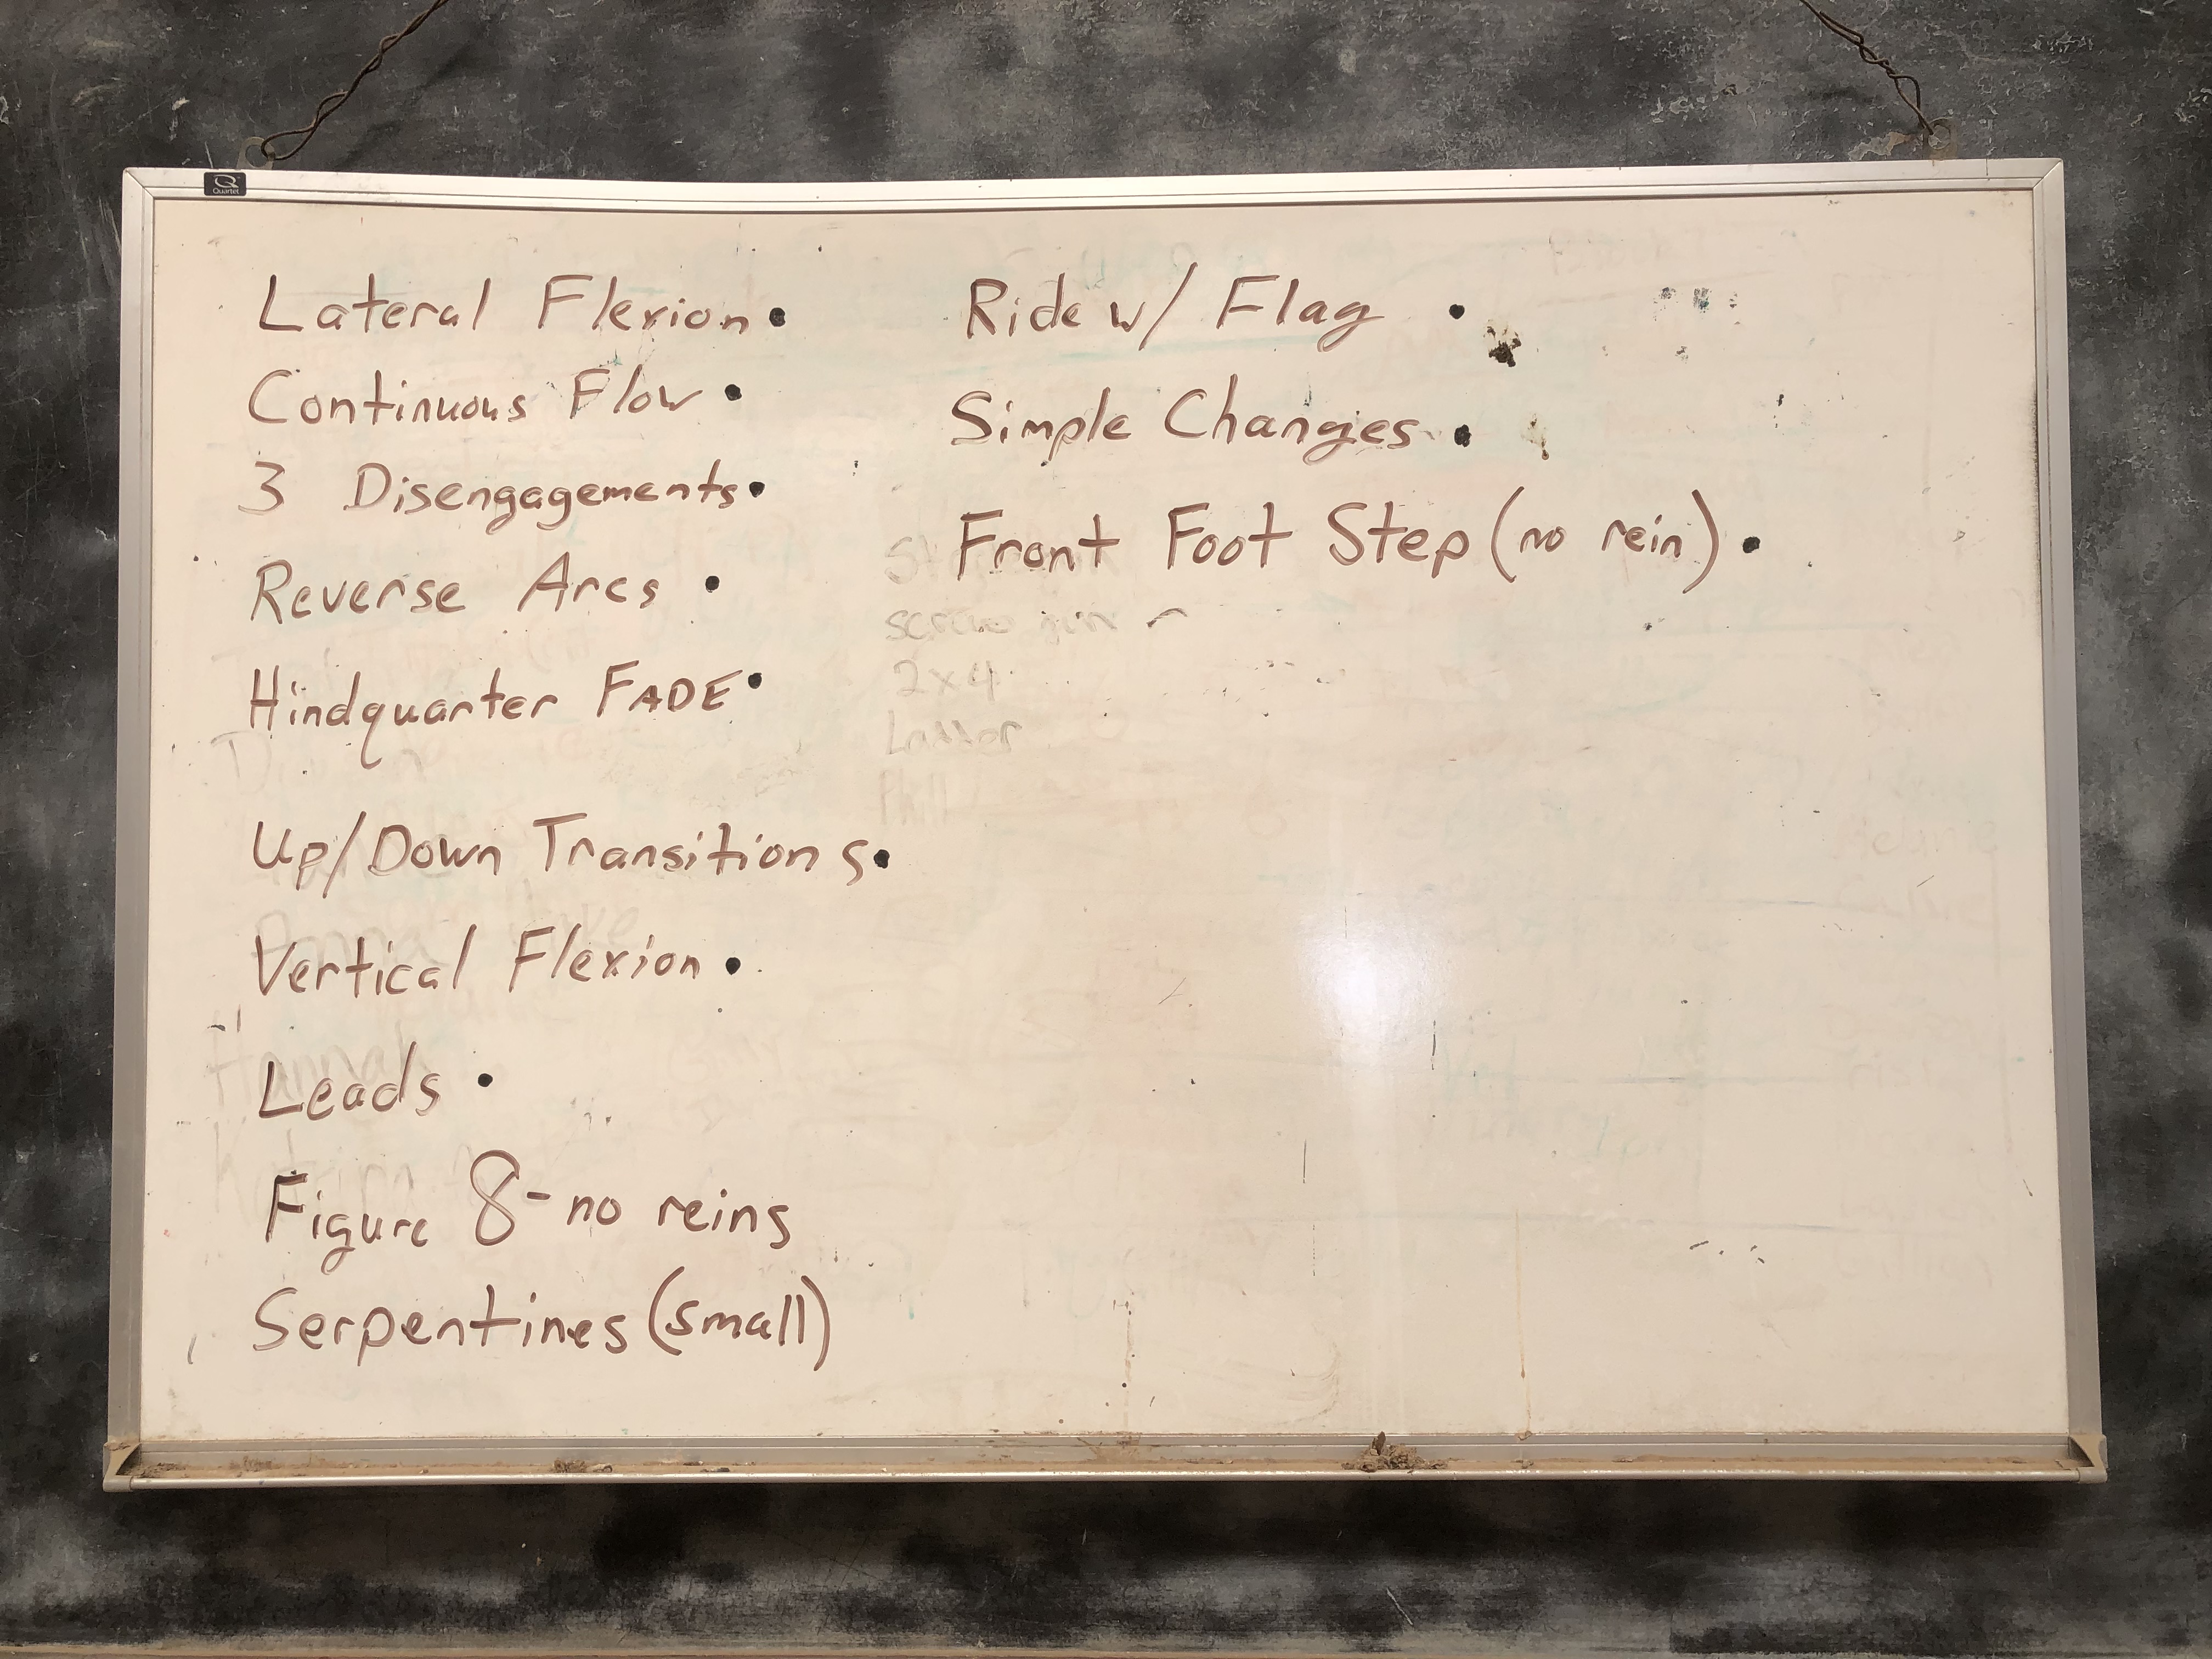 Quartet
Lateral Flexion•
Continuous Flow•
3 Disengagements•
Reverse Arcs •
Hindquarter FADE•
Up/Down Transitions•
Vertical Flexion•
Leads •
Figure 8-no reins
Serpentines (small)
Ride w/ Flag •
Simple Changes •
Front Foot Step (no rein) •
2x4
Hannah